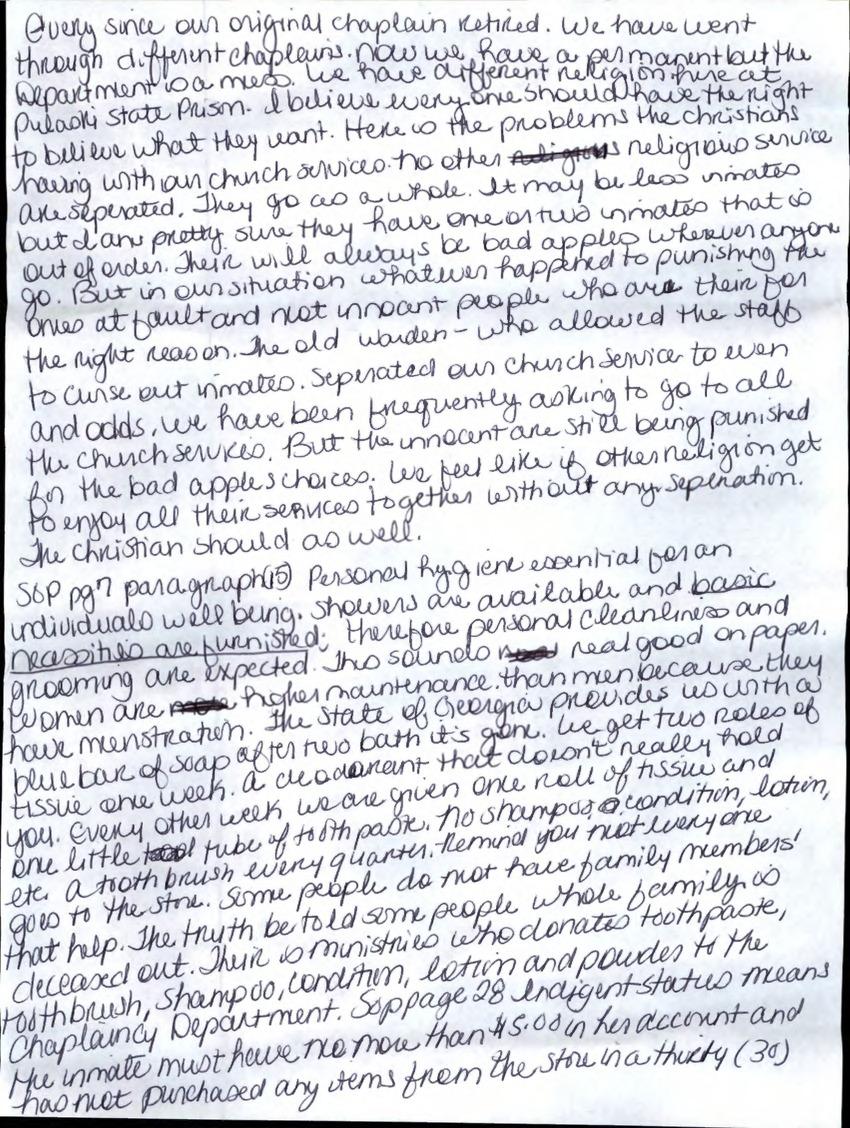 Every since our original chaplain retired. We have went
through different chaplains. now we have a permanent but the
Department is a mess. We have different religion here at
Pulaski State Prison. I believe everyone should have the right
to believe what they want. Here is the problems the christians
having with our church services. no other religious service
are seperated. They go as a whole. It may be less inmates
but I am pretty sure they have one or two inmates that is
out of order. Their will always be bad apples wherever anyone
go. But in our situation whatever happened to punishing the
ones at fault and not innocent people who are their for
the right reason. The old warden - who allowed the staff
to curse out inmates. Seperated our church service to even
and odds, we have been frequently asking to go to all
the church services. But the innocent are still being punished
for the bad apples choices. We feel like if other religion get
to enjoy all their services together without any seperation.
The christian should as well.
SOP pg 7 paragraph (15) Personal hygiene essential for an
individuals well being. showers are available and basic
necessities are furnished; therefore personal cleanliness and
grooming are expected. This sounds real good on paper.
Women are higher maintenance. than men because they
have menstration. The State of Georgia provides us with a
blue bar of soap after two bath it's gone. We get two roles of
tissue one week. a deodorant that doesn't really hold
you. Every other week we are given one roll of tissue and
one little tube of toothpaste. no shampoo, condition, lotion,
etc. A toothbrush every quarter. Remind you not everyone
goes to the store. Some people do not have family members'
that help. The truth be told some people whole family is
deceased out. Their is ministries who donates toothpaste,
toothbrush, shampoo, condition, lotion and powder to the
Chaplaincy Department. Sop page 28 Indigent status means
the inmate must have no more than $5.00 in her account and
has not purchased any items from the store in a thirty (30)